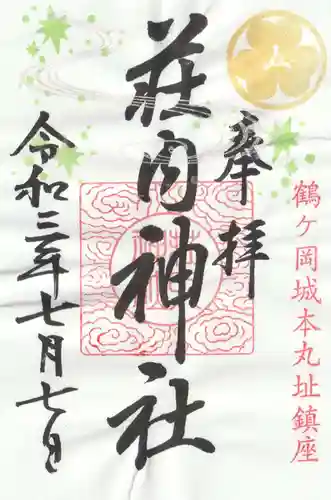 鶴ヶ岡城本丸址鎮座
奉拝
荘内神社
令和三年七月七日